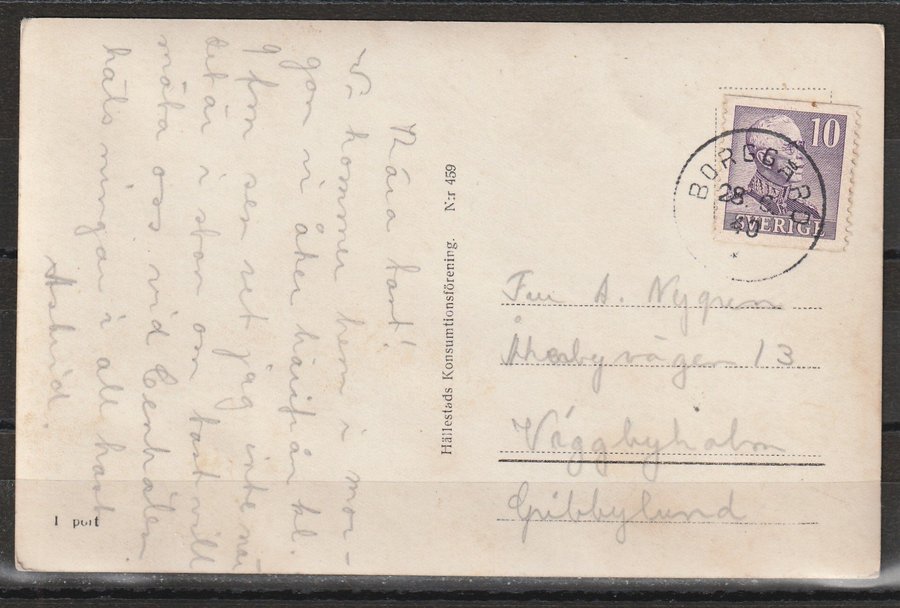 Kära tant!
Vi kommer hem i mor-
gon vi åker härifrån kl.
9 fm sen vet jag inte när
det är i sthm om tant vill
möta oss vid Centralen
häls mingar i all hast
Astrid.
1 port
Hällestads Konsumtionsförening. N:r 459
BORGGÅRD
28. 40
10
SVERIGE
Fru A. Nygren
Åkerbyvägen 13
Viggbyholm
Gribbylund